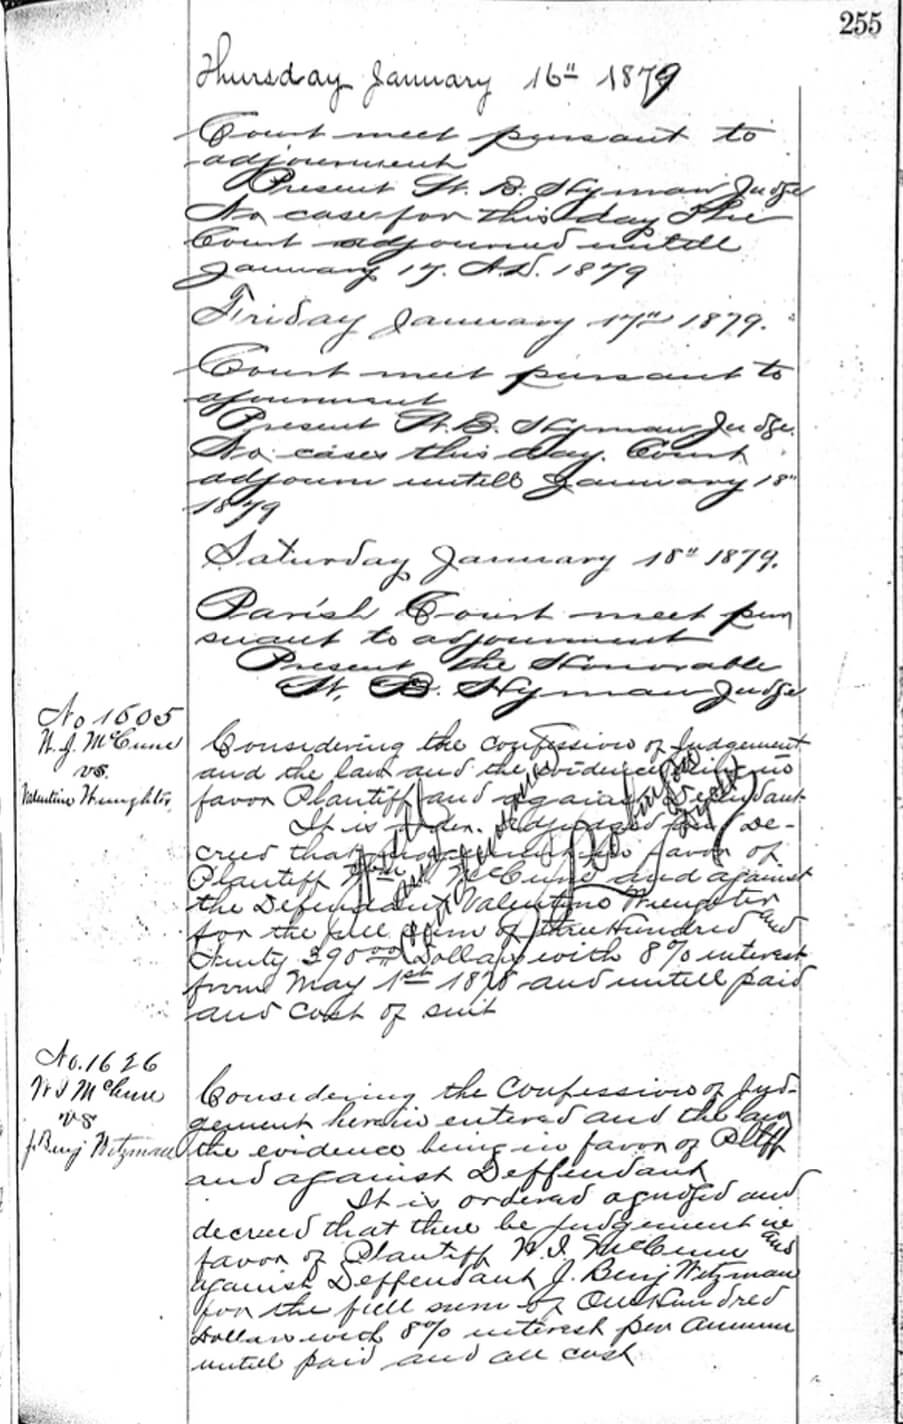 255
Thursday January 16" 1879
Court meet pursuant to
adjournment
Present W. B. Hyman Judge
No case for this day The
Court adjourned untill
January 17. A.D. 1879
Friday January 17" 1879.
Court meet pursuant to
ajournment
Present W. B. Hyman Judge.
No cases this day. Court
adjourn untill January 18"
1879
Saturday January 18" 1879.
Parish Court meet pur
suant to adjournment
Present the Honorable
W. B. Hyman Judge
No 1605
W. J. McCune
vs.
Valentine
Considering the confession of Judgement
and the law and the evidence being in
favor Plantiff and against Defendant
It is order. adjudged and De-
creed that judgement in favor of
Plantiff McCune and against
the Defendant Valentine
for the full sum of three Hundred and
Ninty 390 00 Dollars with 8% interest
from May 1st 1878 and untill paid
and cost of suit
No. 1626
W I McCune
vs
J. Benj Witzman
Considering the Confession of Jud-
gement herein entered and the law
the evidence being in favor of Pltff
and against Deffendant
It is ordered agudged and
decreed that there be judgement in
favor of Plantiff W. I. McCune and
against Deffendant J. Benj Witzman
for the full sum of One Hundred
Dollars with 8% interest per annum
untill paid and all cost